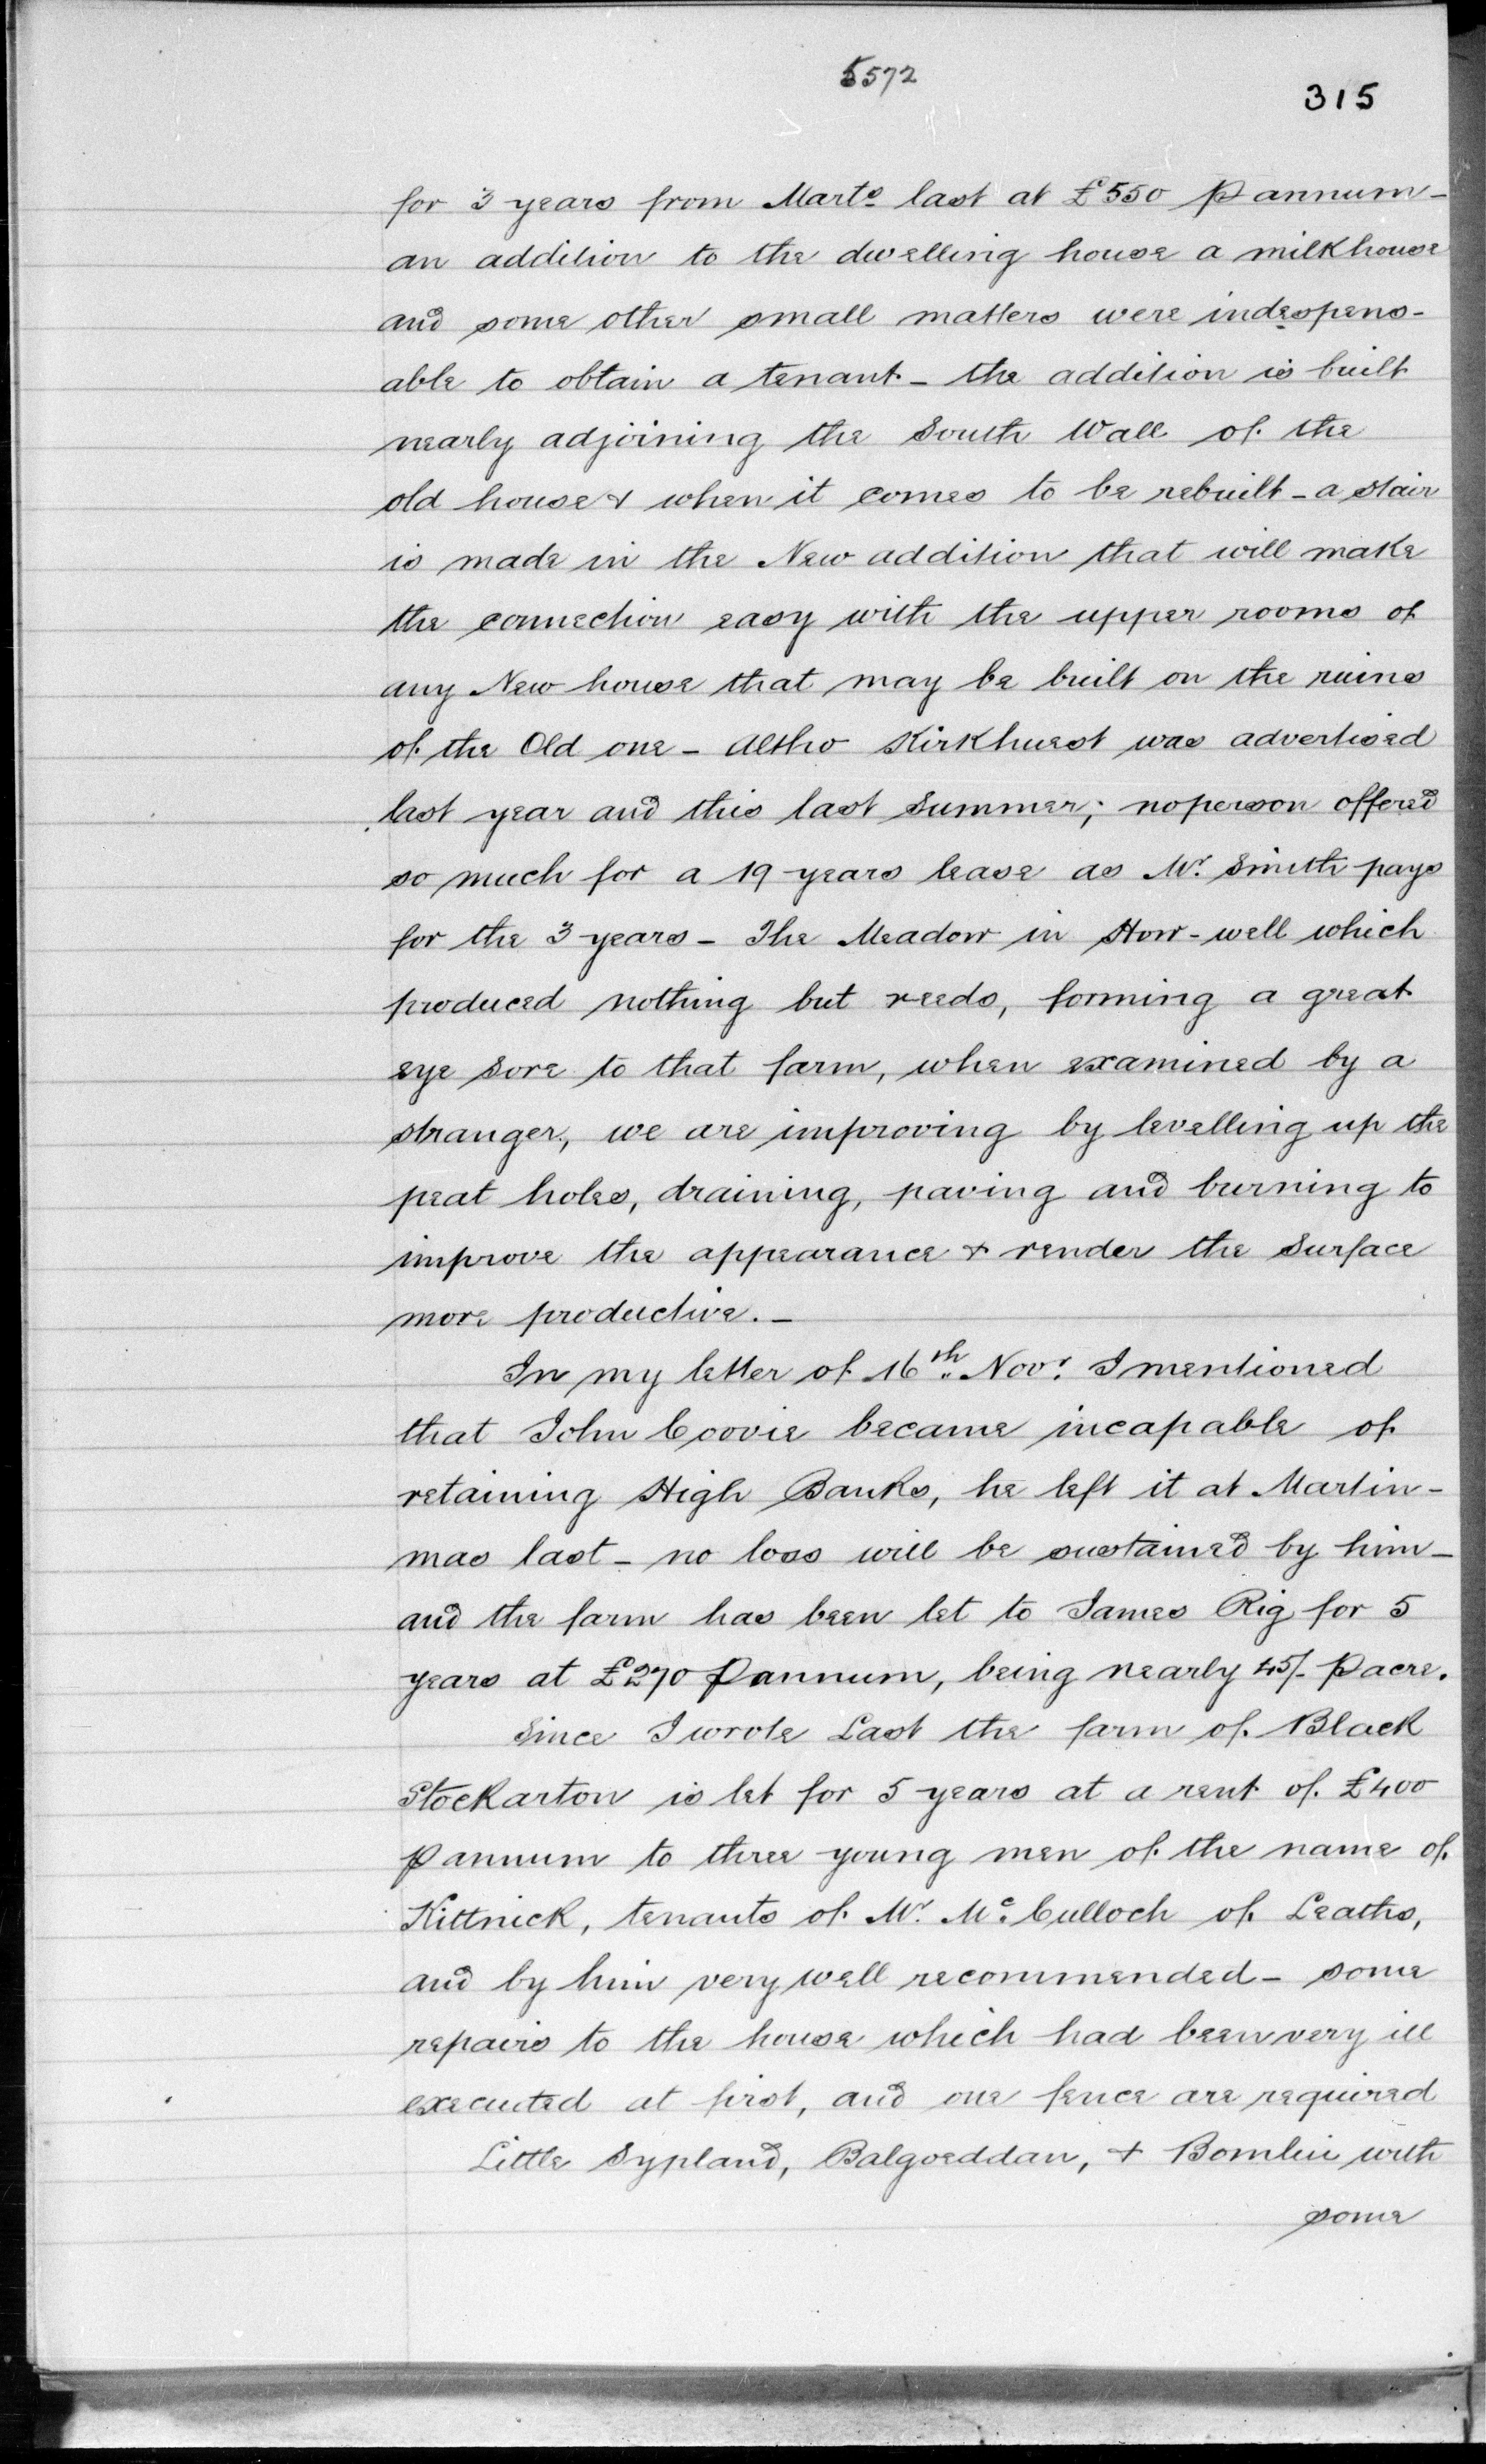 5572
315
for 3 years from Marts last at £550 P annum -
an addition to the dwelling house a milkhouse
and some other small matters were indespens-
able to obtain a tenant - the addition is built
nearly adjoining the South Wall of the
old house & when it comes to be rebuilt - a stair
is made in the New addition that will make
the connection easy with the upper rooms of
any New house that may be built on the ruins
of the Old one - Altho Kirkhuest was advertised
last year and this last Summer; no person offered
so much for a 19 years lease as Mr. Smith pays
for the 3 years - The Meadow in How-well which
produced nothing but reeds, forming a great
eye sore to that farm, when examined by a
stranger, we are improving by levelling up the
peat holes, draining, paving and burning to
improve the appearance & render the surface
more productive. -
In my letter of 16th Novr. I mentioned
that John Coovie became incapable of
retaining High Banks, he left it at Martin-
mas last - no loss will be sustained by him -
and the farm has been let to James Rig for 5
years at £270 P annum, being nearly 45/- P acre.
Since I wrote Last the farm of Black
Stockarton is let for 5 years at a rent of £400
P annum to three young men of the name of
Kittnick, tenants of Mr. McCulloch of Leaths,
and by him very well recommended - some
repairs to the house which had been very ill
executed at first, and one fence are required
Little Sypland, Balgoeddan, & Bomlin with
some